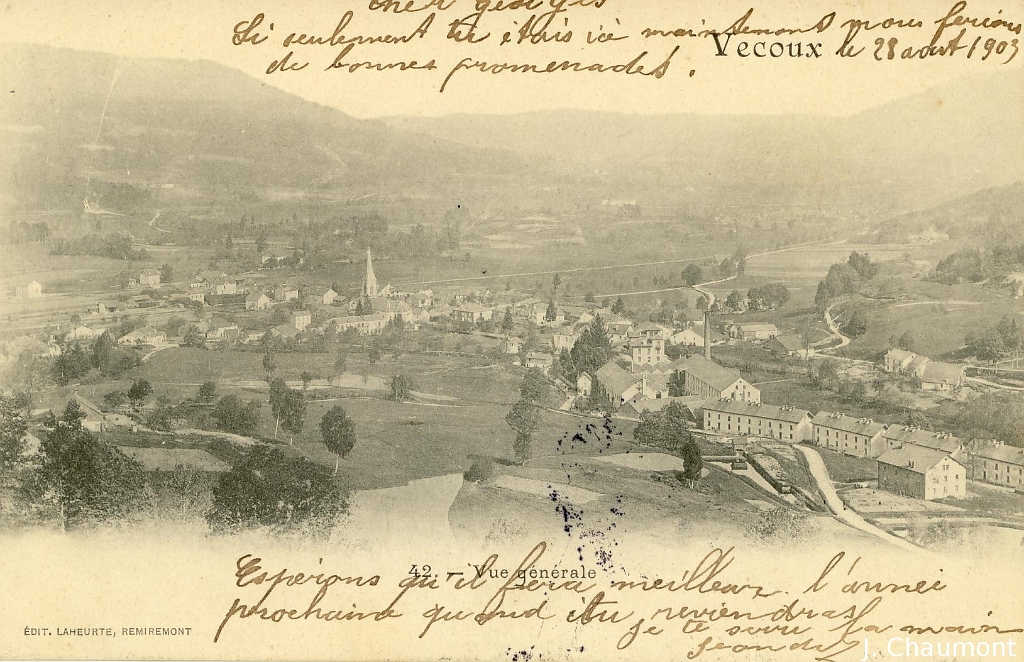 cher georges
Si seulement tu étais ici maintenant nous ferions
de bonnes promenades.
Vecoux le 28 aout 1903
42. — Vue générale
Esperons qu'il fera meilleur l'année
prochaine quand tu reviendras
je te serre la main
ÉDIT. LAHEURTE, REMIREMONT
J. Chaumont